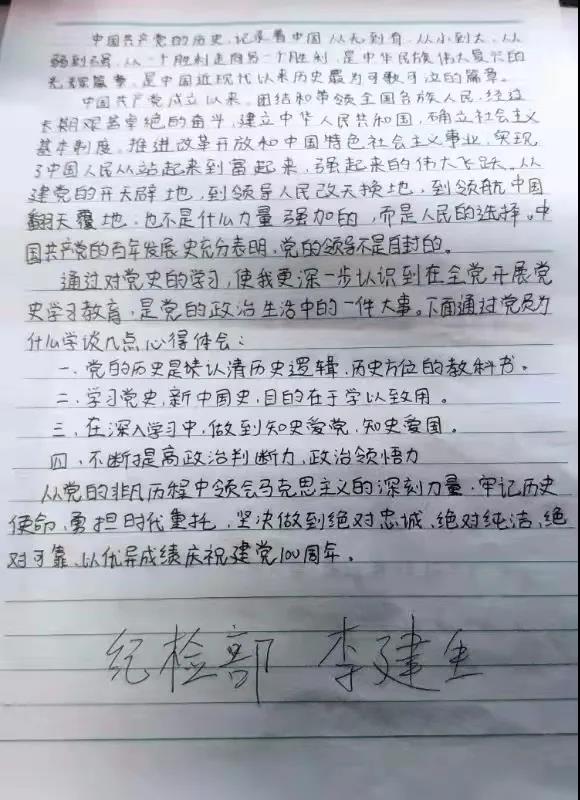 中国共产党的历史,记录着中国从无到有、从小到大、从
弱到强、从一个胜利走向另一个胜利,是中华民族伟大复兴的
光辉篇章,是中国近现代以来历史最为可歌可泣的篇章。
中国共产党成立以来,团结和带领全国各族人民,经过
长期艰苦卓绝的奋斗,建立中华人民共和国,确立社会主义
基本制度,推进改革开放和中国特色社会主义事业,实现
了中国人民从站起来到富起来,强起来的伟大飞跃。从
建党的开天辟地,到领导人民改天换地,到领航中国
翻天覆地,也不是什么力量强加的,而是人民的选择。中
国共产党的百年发展史充分表明,党的领导不是自封的。
通过对党史的学习,使我更深一步认识到在全党开展党
史学习教育,是党的政治生活中的一件大事。下面通过党员为
什么学谈几点心得体会:
一、党的历史是续认清历史逻辑,历史方位的教科书。
二、学习党史,新中国史,目的在于学以致用。
三、在深入学习中,做到知史爱党,知史爱国。
四、不断提高政治判断力,政治领悟力
从党的非凡历程中领会马克思主义的深刻力量,牢记历史
使命,勇担时代重托,坚决做到绝对忠诚、绝对纯洁、绝
对可靠,以优异成绩庆祝建党100周年。
纪检部 李建生